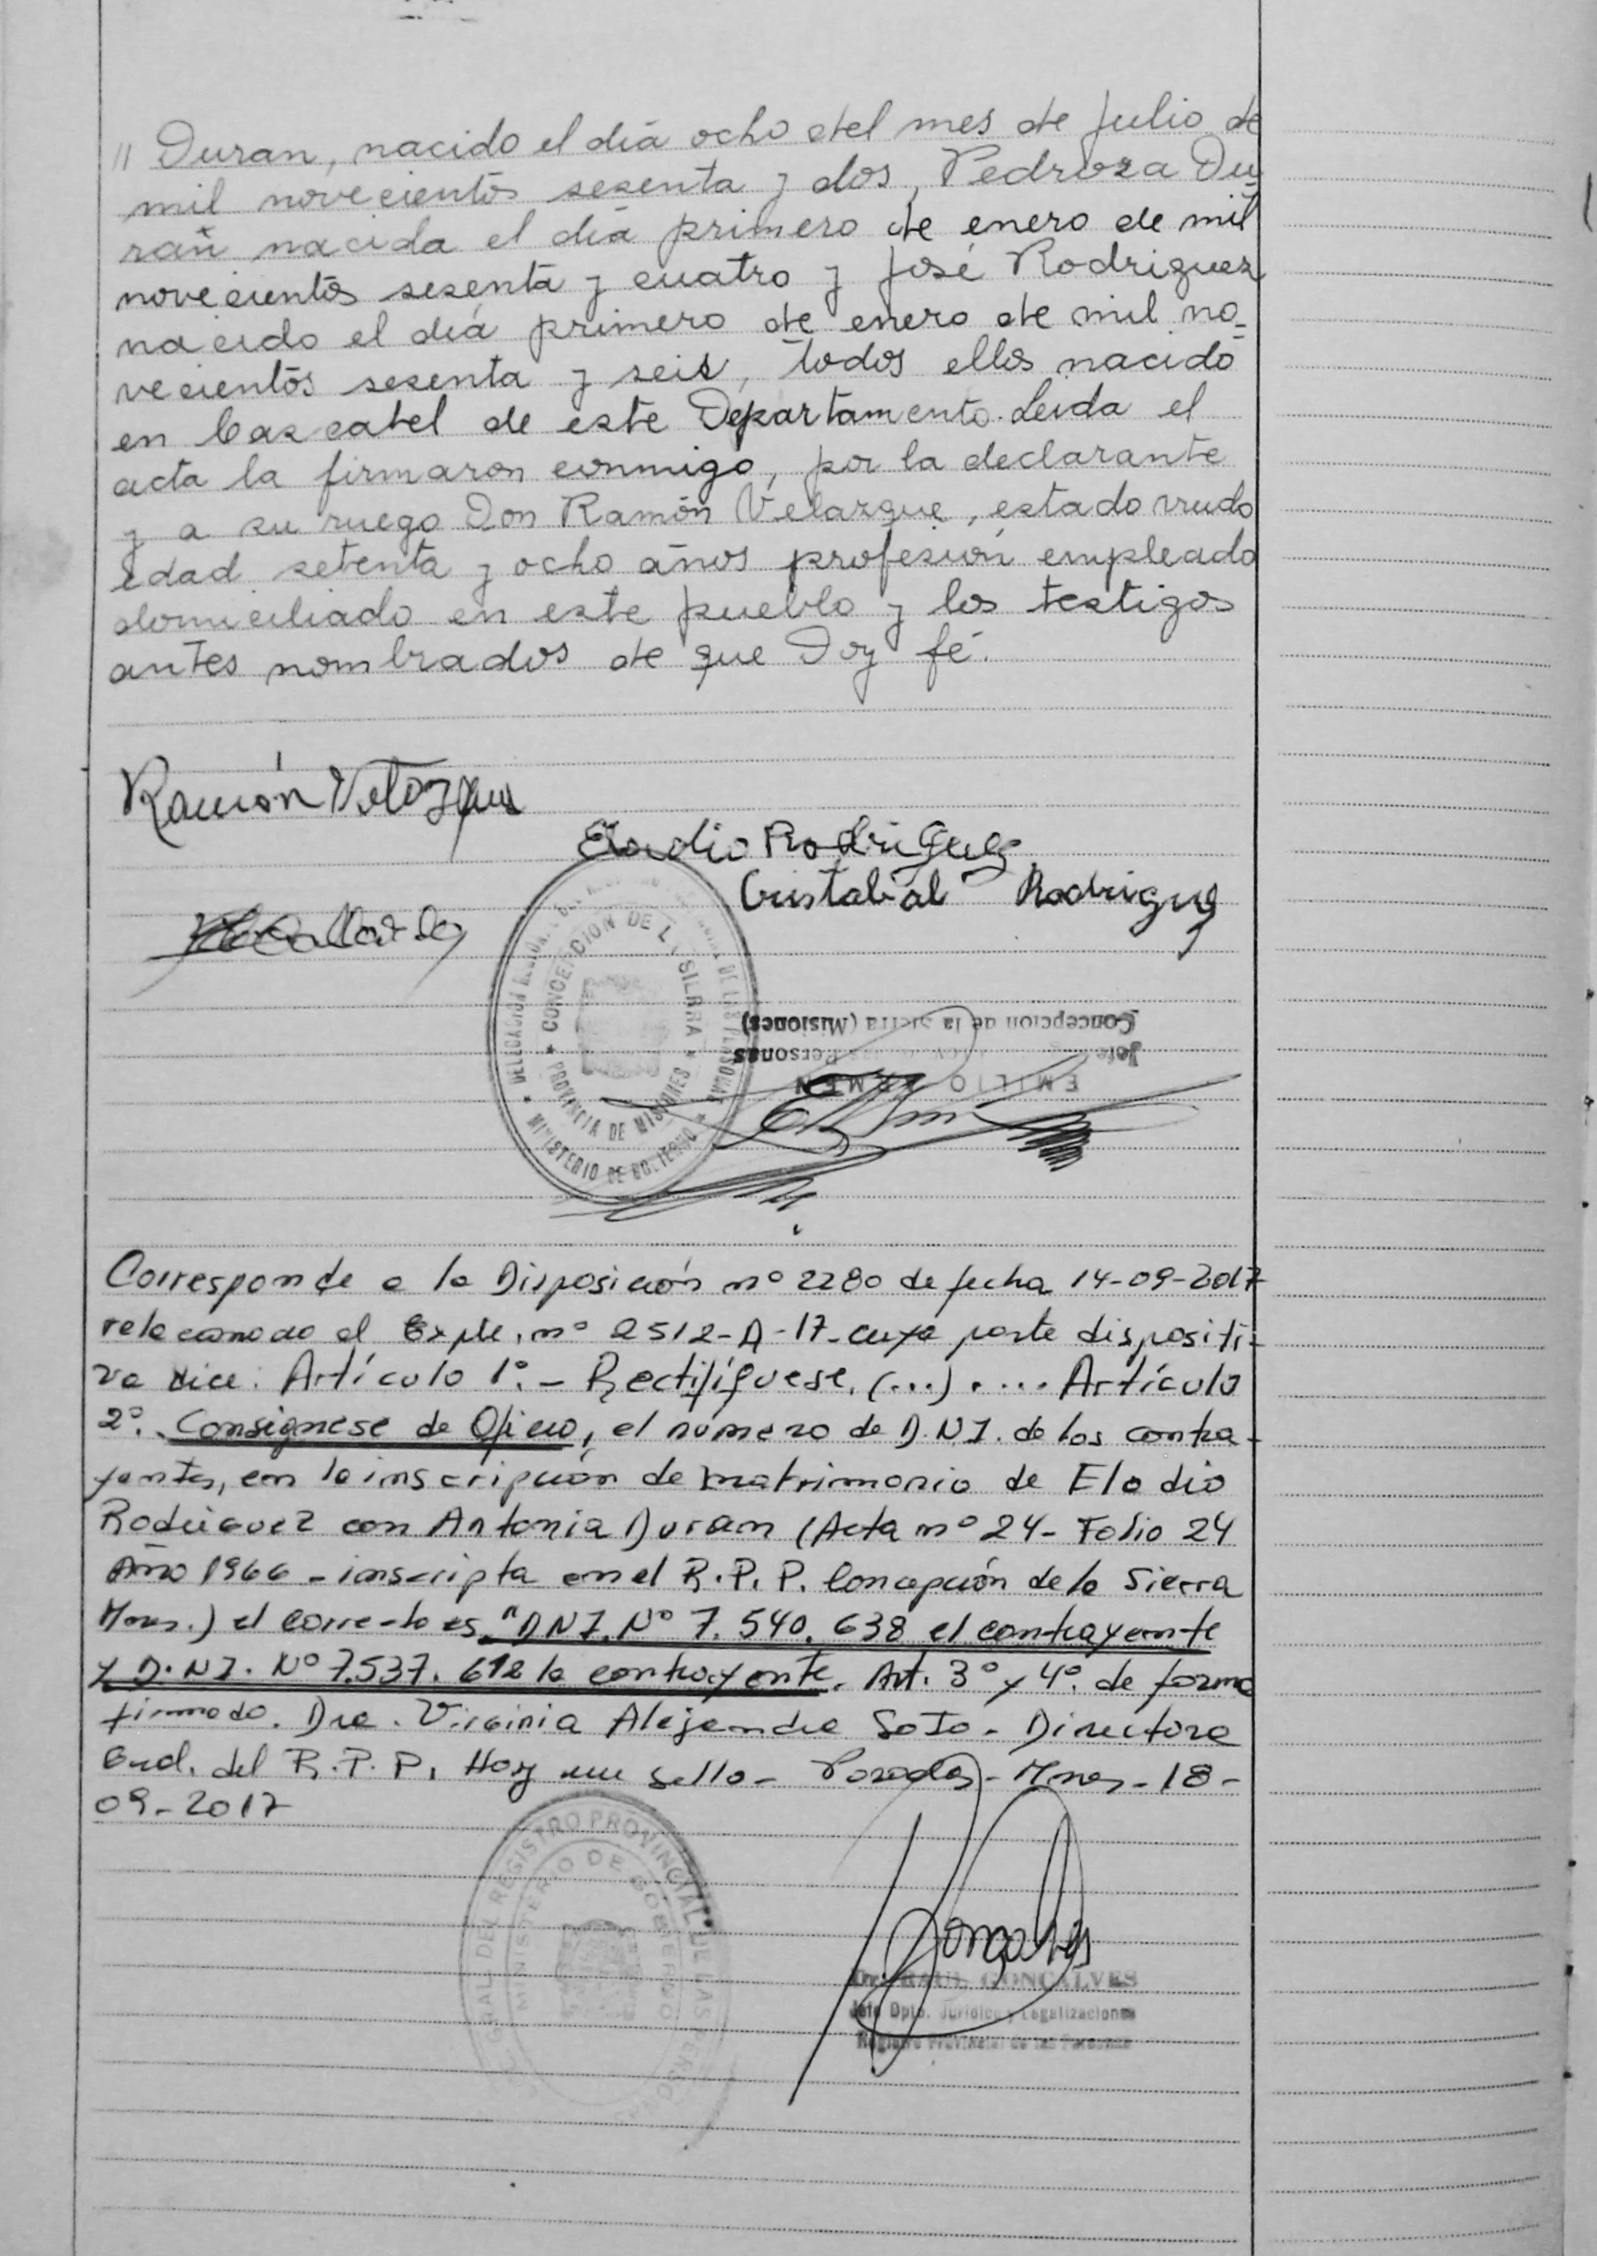 // Duran, nacido el día ocho del mes de Julio de
mil novecientos sesenta y dos, Pedroza Du
rán nacida el día primero de enero de mil
novecientos sesenta y cuatro y José Rodriguez
nacido el día primero de enero de mil no-
vecientos sesenta y seis, todos ellos nacido
en Cascatel de este Departamento. Leida el
acta la firmaron conmigo, por la declarante
y a su ruego Don Ramón Velazque, estado viudo
edad setenta y ocho años profesión empleado
domiciliado en este pueblo y los testigos
antes nombrados de que Doy fé.
Ramón Velozque
Elaudio Rodriguez
Cristabal Rodriguez
CONCEPCION DE LA SIERRA
PROVINCIA DE MISIONES
MINISTERIO DE GOBIERNO
EMILIO
Jefe Personas
Concepcion de la Sierra (Misiones)
Corresponde a la Disposición nº 2280 de fecha 14-09-2017
relacionado al Expte. nº 2512-A-17- cuya parte dispositi-
va dice: Artículo 1º.- Rectifíquese. (...). ... Artículo
2º. Consígnese de Oficio, el número de D.N.I. de los contra-
yentes, en la inscripción de matrimonio de Elodio
Rodriguez con Antonia Duran (Acta nº 24- Folio 24
Año 1966 - inscripta en el R.P.P. Concepción de la Sierra
Mnes.) el correcto es "DNI. Nº 7.540.638 el contrayente
y D.NI. Nº 7.537.612 la contrayente. Art. 3º y 4º. de forma
firmado. Dra. Virginia Alejandra Soto - Directora
Gral. del R.P.P. Hay un sello - Posadas - Mnes - 18-
09-2017
GRAL DEL REGISTRO PROVINCIAL DE LAS PERSONAS
MINISTERIO DE GOBIERNO
Gonçalves
Dr. RAUL GONCALVES
Jefe Dpto. Jurídico y Legalizaciones
Registro Provincial de las Personas